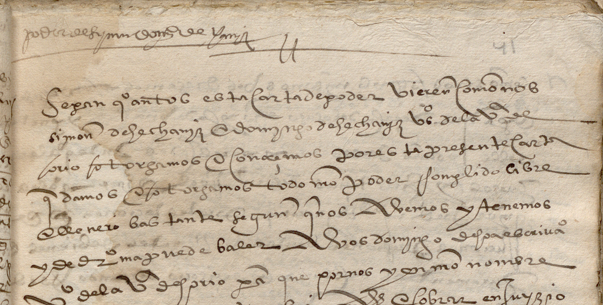 poder de symon
Sepan quantos esta Carta de poder vieren Como nos
simon de hechaniz E domingo de hechaniz vos de la va de
otorgamos E Conocemos por esta presente Carta
q damos E otorgamos todo nro poder Conplido libre
E llenero bastante segun q nos Avemos y tenemos
y de dro mas puede baler A vos domingo despa escrivao
vo de la va de para que por nos y en nro nonbre
Cobrar en Juyzio